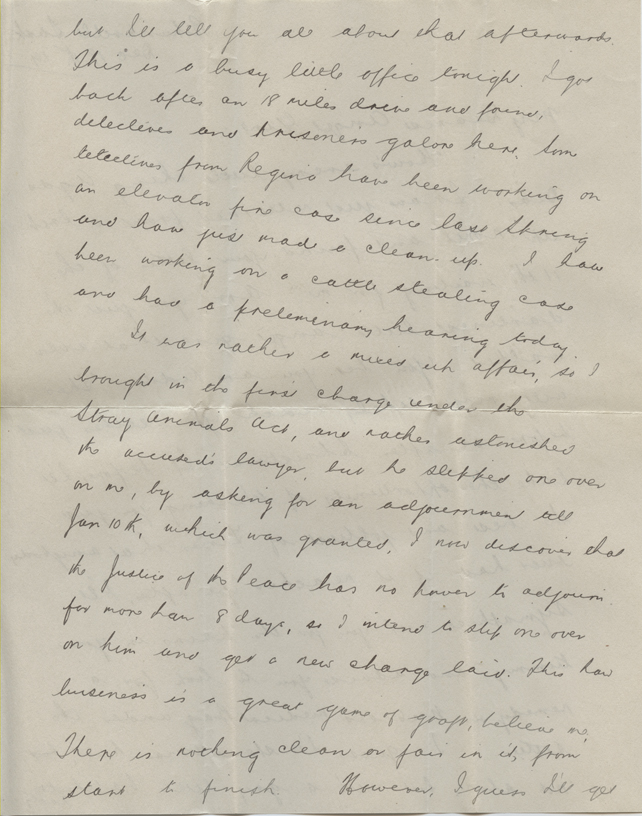 but I'll tell you all about that afterwards.
This is a busy little office tonight. I got
back after an 18 miles drive and found,
detectives and prisoners galore here. Some
detectives from Regina have been working on
an elevator fire case since last Spring
and have just made a clean-up. I have
been working on a cattle stealing case
and had a preleminary hearing today.
It was rather a mixed up affair, so I
brought in the first charge under the
Stray Animals Act, and rather astonished
the accused's lawyer, but he slipped one over
on me, by asking for an adjournment till
Jan 10th, which was granted. I now discover that
the Justice of the Peace has no power to adjourn
for more than 8 days, so I intend to slip one over
on him and get a new charge laid. This law
buisness is a great game of graft, believe me,
There is nothing clean or fair in it, from
start to finish. However, I guess I'll get